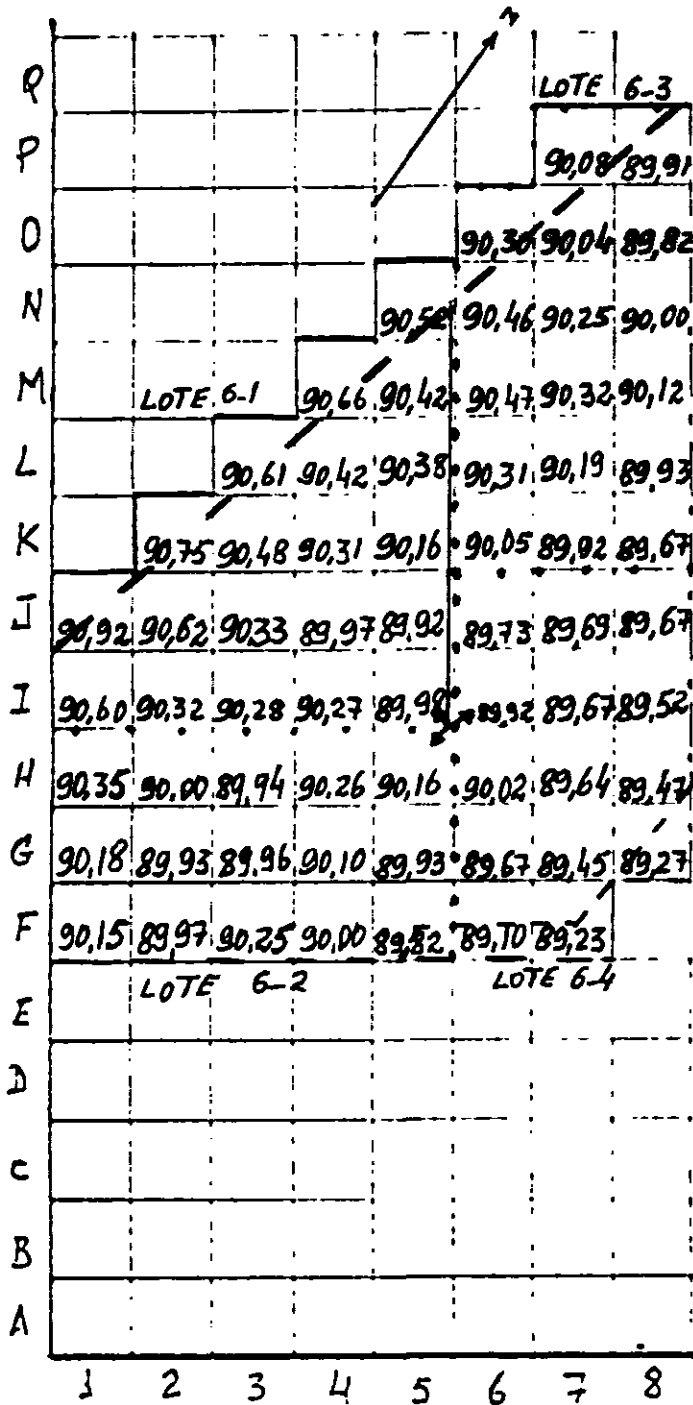 N
Q LOTE 6-3
P 90,08 89,91
O 90,30 90,04 89,82
N 90,52 90,46 90,25 90,00
M LOTE 6-1 90,66 90,42 90,47 90,32 90,12
L 90,61 90,42 90,38 90,31 90,19 89,93
K 90,75 90,48 90,31 90,16 90,05 89,92 89,67
J 90,92 90,62 90,33 89,97 89,92 89,73 89,69 89,67
I 90,60 90,32 90,28 90,27 89,98 89,92 89,67 89,52
H 90,35 90,00 89,94 90,26 90,16 90,02 89,64 89,47
G 90,18 89,93 89,96 90,10 89,93 89,67 89,45 89,27
F 90,15 89,97 90,25 90,00 89,82 89,70 89,23
LOTE 6-2 LOTE 6-4
E
D
C
B
A
1 2 3 4 5 6 7 8